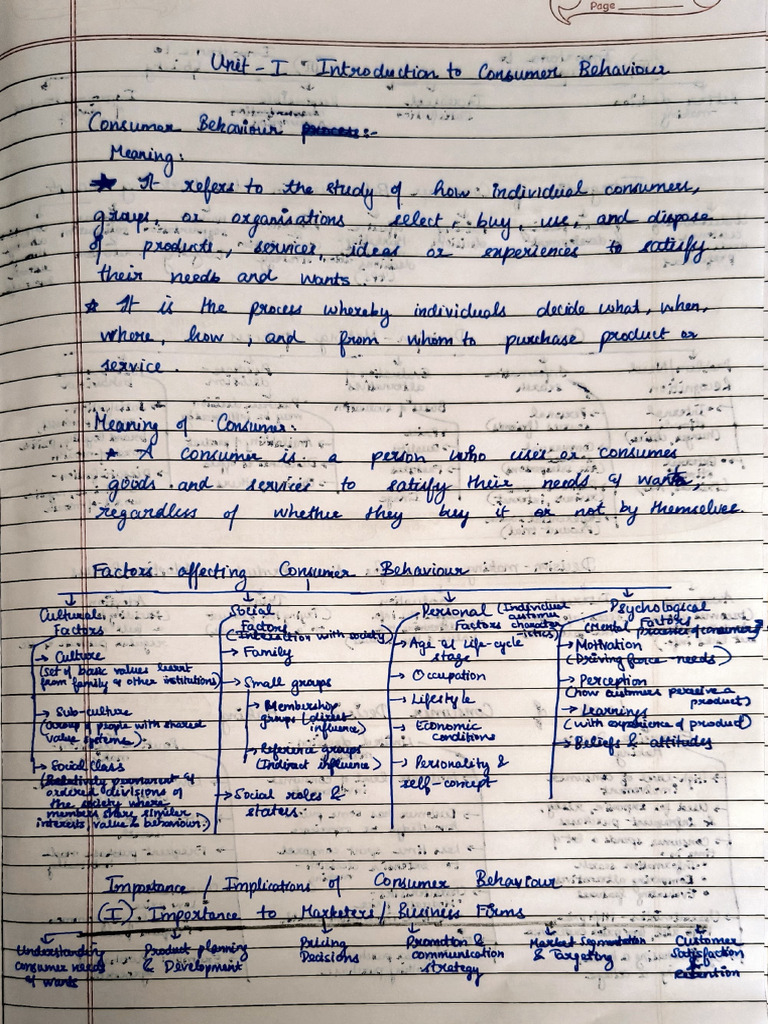 Page
Unit - I Introduction to Consumer Behaviour
Consumer Behaviour :-
Meaning:
★ It refers to the study of how individual consumers,
groups, or organisations select, buy, use, and dispose
of products, services, ideas or experiences to satisfy
their needs and wants
★ It is the process whereby individuals decide what, when,
where, how, and from whom to purchase product or
service.
Meaning of Consumer:
★ A consumer is a person who uses or consumes
goods and services to satisfy their needs & wants,
regardless of whether they buy it or not by themselves.
Factors affecting Consumer Behaviour
Cultural
Factors
→ Culture
(set of basic values learnt
from family & other institutions)
→ Sub-culture
(Group of people with shared
value systems)
→ Social Class
(Relatively permanent &
ordered divisions of
the society where
members share similar
interests, value & behaviour)
Social
Factors
(Interaction with society)
→ Family
→ Small groups
→ Membership
groups (direct
influence)
→ Reference groups
(Indirect influence)
→ Social roles &
status.
Personal (Individual
customer
Factors
-istics)
→ Age & Life-cycle
stage
→ Occupation
→ Lifestyle
→ Economic
conditions
→ Personality &
self-concept
Psychological
Factors
(Mental processes of consumer)
→ Motivation
(Driving force needs)
→ Perception
(how customers perceive a
product)
→ Learnings
(with experience of product)
→ Beliefs & attitudes
Importance / Implications of Consumer Behaviour
(I) Importance to Marketers / Business Firms
Understanding
consumer needs
& wants
Product planning
& Development
Pricing
Decisions
Promotion &
communication
strategy
Market Segmentation
& Targeting
Customer
Satisfaction
&
retention